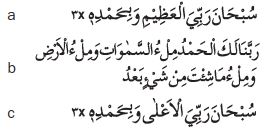 a سُبْحَانَ رَبِّيَ الْعَظِيْمِ وَبِحَمْدِهٖ ٣x
رَبَّنَالَكَ الْحَمْدُ مِلْءُ السَّمٰوَاتِ وَمِلْءُ الْاَرْضِ
b وَمِلْءُ مَاشِئْتَ مِنْ شَيْءٍ بَعْدُ
c سُبْحَانَ رَبِّيَ الْاَعْلٰى وَبِحَمْدِهٖ ٣x